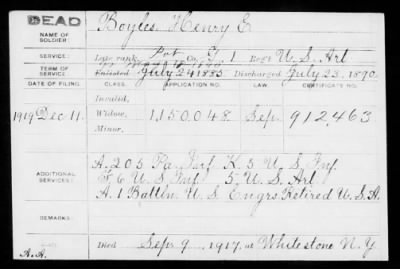 DEAD
NAME OF SOLDIER:
Boyles, Henry E
SERVICE:
Late rank, Pvt Co. G 1 Reg't U. S. Art
TERM OF SERVICE:
Enlisted July 24 1885 Discharged July 23, 1890
DATE OF FILING. CLASS. APPLICATION NO. LAW. CERTIFICATE NO.
Invalid,
1919 Dec 11. Widow, 1,150,048. Sep. 912,463
Minor,
ADDITIONAL SERVICES:
A. 205 Pa. Inf. K. 5 U. S. Inf.
F 6 U. S. Inf 5 U. S. Art
A. 1 Battln. U. S. Engrs Retired U. S. A.
REMARKS:
Died Sep. 9 1917, at Whitestone N. Y.
A. A.